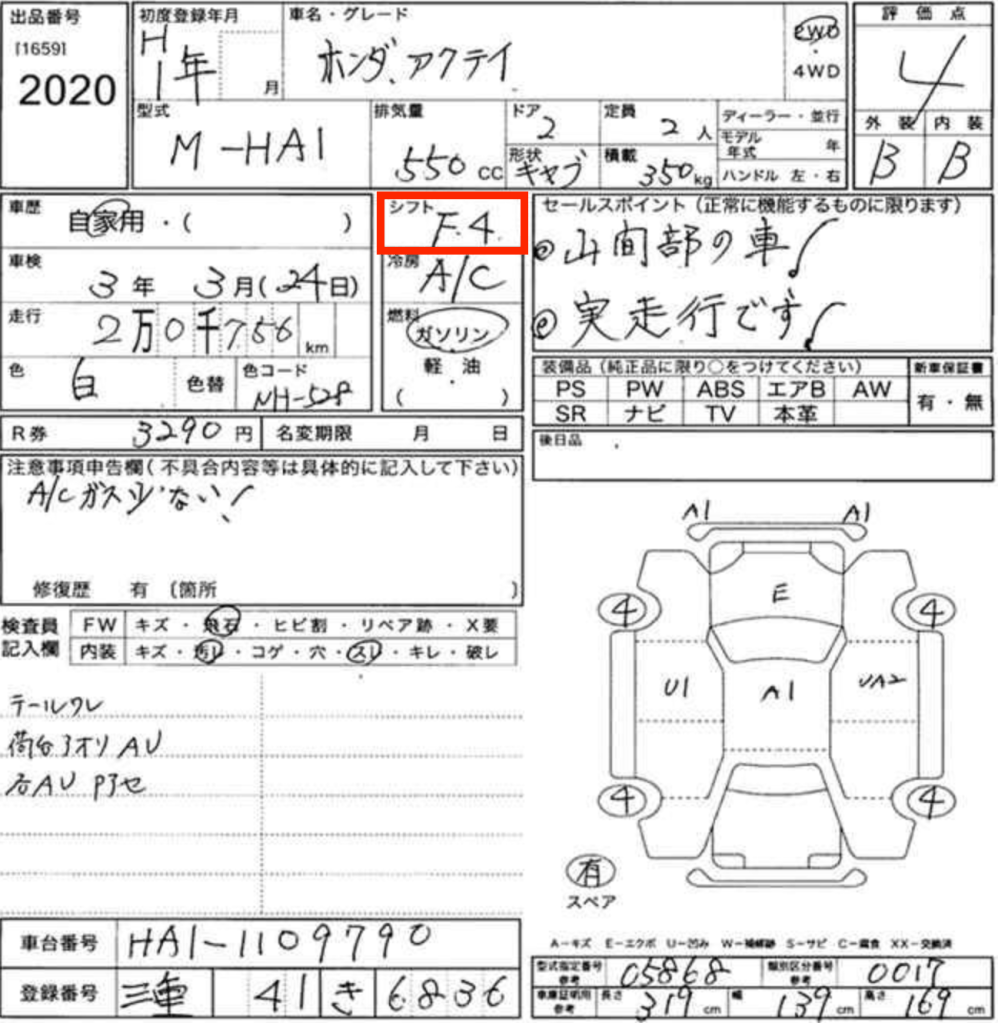 出品番号 初度登録年月 車名・グレード 評価点
[1659] H1年 月 ホンダ、アクテイ 2WD・4WD 4
2020
型式 排気量 ドア 定員 ディーラー・並行 外装 内装
M-HA1 550cc 2 2人 モデル年式 年 B B
形状 キャブ 積載 350kg ハンドル 左・右
車歴 自家用・( ) シフト F.4. セールスポイント(正常に機能するものに限ります)
車検 3年 3月(24日) 冷房 A/C ◎山間部の車!
走行 2万0千756km 燃料 ガソリン ◎実走行です!
色 白 色替 色コード NH-528 軽油 ( )
装備品(純正品に限り○をつけてください) 新車保証書
PS PW ABS エアB AW 有・無
SR ナビ TV 本革
R券 3290円 名変期限 月 日 後日品
注意事項申告欄(不具合内容等は具体的に記入して下さい)
A/Cガス少ない!
修復歴 有 〔箇所 〕
検査員記入欄 FW キズ・飛石・ヒビ割・リペア跡・X要
内装 キズ・汚レ・コゲ・穴・スレ・キレ・破レ
テールワレ
荷台アオリ AU
右AU Pアセ
A1 A1
E
4 4
U1 A1 UA2
4 4
有
スペア
A-キズ E-エクボ U-凹み W-補修跡 S-サビ C-腐食 XX-交換済
車台番号 HA1-1109790
型式指定番号参考 05868 類別区分番号参考 0017
登録番号 三重 41 き 6836
車庫証明用参考 長さ 319cm 幅 139cm 高さ 169cm